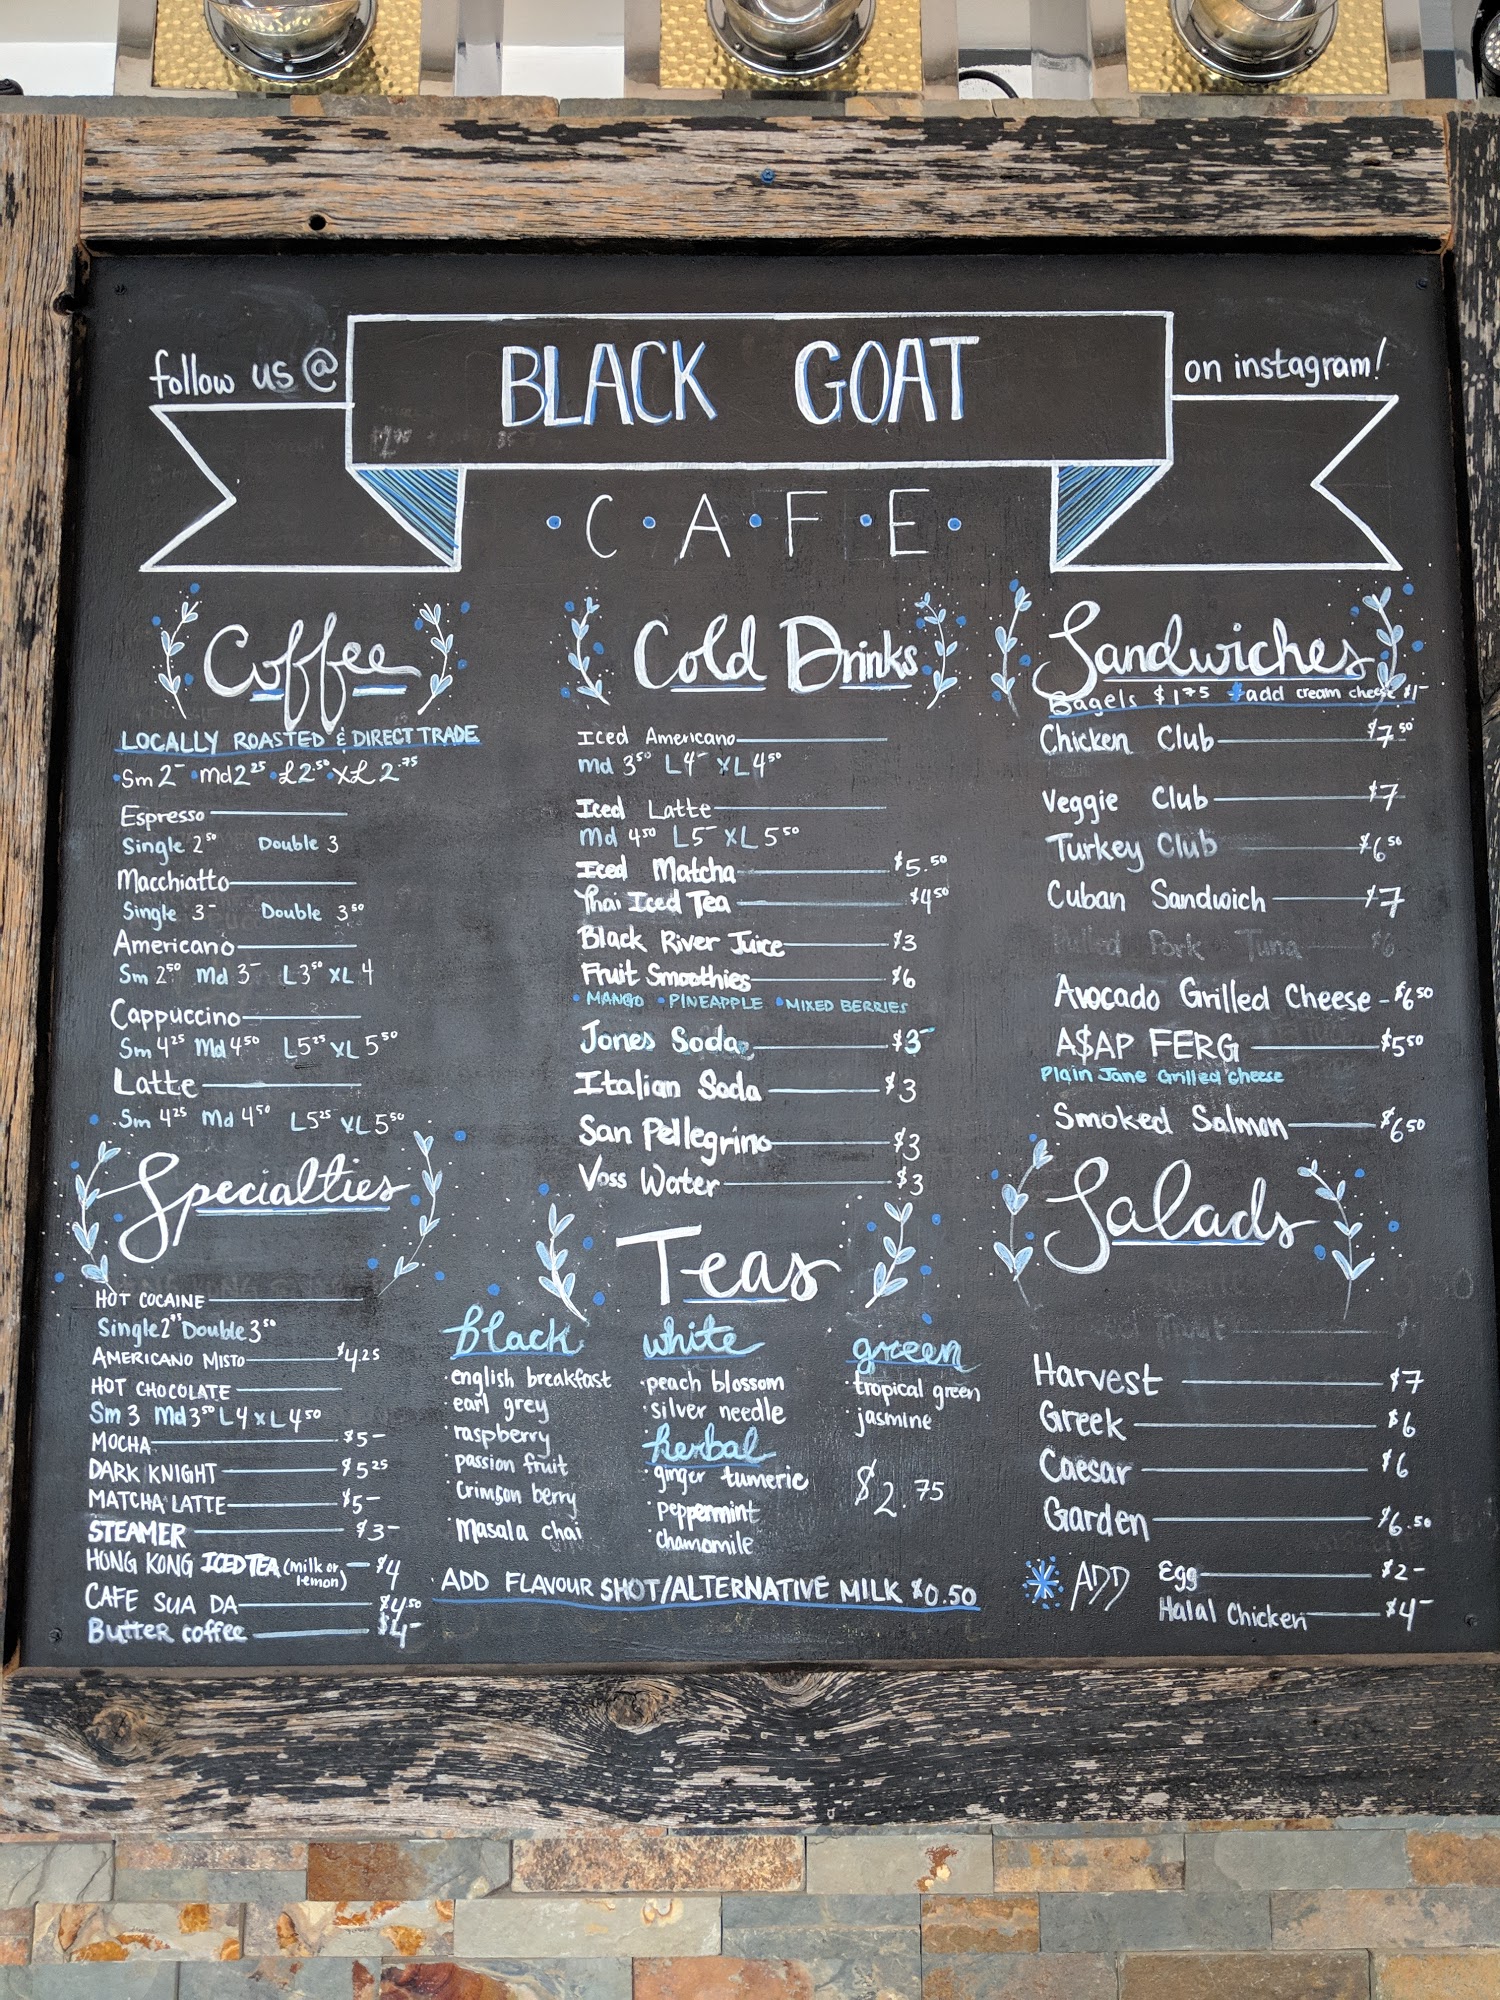 follow us @
BLACK GOAT
on instagram!
• C • A • F • E •
Coffee
LOCALLY ROASTED & DIRECT TRADE
• Sm 2- • Md 2 25 • L 2.50 • XL 2.75
Espresso
Single 2 50 Double 3
Macchiatto
Single 3- Double 3 50
Americano
Sm 2 50 Md 3- L 3 50 XL 4
Cappuccino
Sm 4 25 Md 4 50 L 5 25 XL 5 50
Latte
Sm 4 25 Md 4 50 L 5 25 XL 5 50
Specialties
HOT COCAINE
Single 2 75 Double 3 50
AMERICANO MISTO $4.25
HOT CHOCOLATE
Sm 3 Md 3 50 L 4 XL 4 50
MOCHA $5-
DARK KNIGHT $5 25
MATCHA LATTE $5-
STEAMER $3-
HONG KONG ICED TEA (milk or lemon) $4
CAFE SUA DA $4 50
Butter coffee $4-
Cold Drinks
Iced Americano
Md 3 50 L 4- XL 4 50
Iced Latte
Md 4 50 L 5- XL 5 50
Iced Matcha $5.50
Thai Iced Tea $4 50
Black River Juice $3
Fruit Smoothies $6
• MANGO • PINEAPPLE • MIXED BERRIES
Jones Soda $3-
Italian Soda $3
San Pellegrino $3
Voss Water $3
Teas
black
• english breakfast
• earl grey
• raspberry
• passion fruit
• Crimson berry
• Masala chai
white
• peach blossom
• silver needle
herbal
• ginger tumeric
• peppermint
• chamomile
green
• tropical green
• jasmine
$2.75
ADD FLAVOUR SHOT/ALTERNATIVE MILK $0.50
Sandwiches
Bagels $1 75 +add cream cheese $1-
Chicken Club $7 50
Veggie Club $7
Turkey Club $6 50
Cuban Sandwich $7
Pulled Pork Tuna $6
Avocado Grilled Cheese - $6 50
A$AP FERG $5 50
Plain Jane Grilled Cheese
Smoked Salmon $6 50
Salads
Harvest $7
Greek $6
Caesar $6
Garden $6.50
ADD
Egg $2-
Halal Chicken $4-